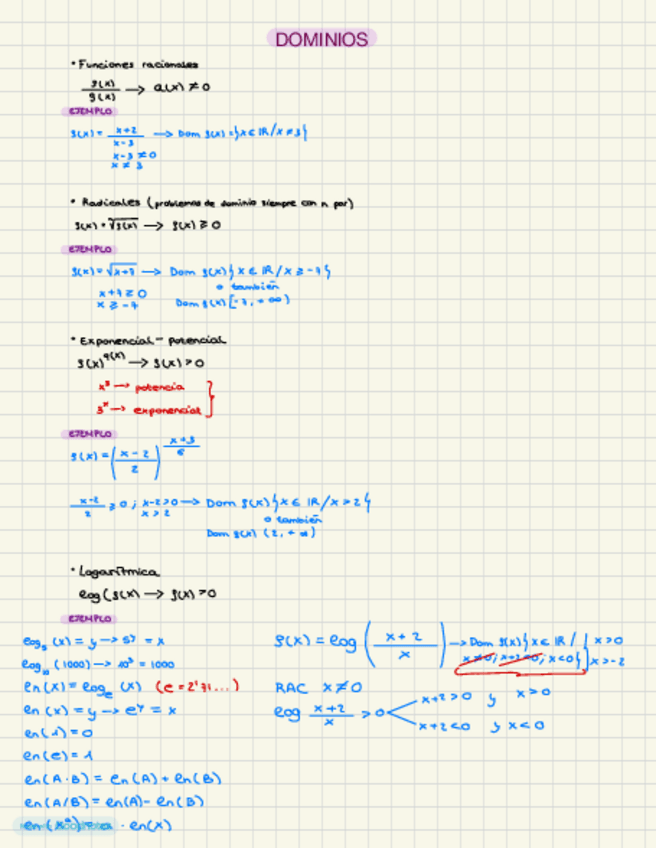 DOMINIOS
• Funciones racionales
f(x)/g(x) → g(x) ≠ 0
EJEMPLO
f(x) = x+2/x-3 → Dom f(x) = {x ∈ IR / x ≠ 3}
x-3 ≠ 0
x ≠ 3
• Radicales (problemas de dominio siempre con n par)
f(x) = √g(x) → g(x) ≥ 0
EJEMPLO
f(x) = √x+7 → Dom f(x) {x ∈ IR / x ≥ -7}
x+7 ≥ 0
o también
x ≥ -7
Dom f(x) [-7, +∞)
• Exponencial - potencial
f(x)^g(x) → f(x) > 0
x³ → potencia
3ˣ → exponencial
EJEMPLO
f(x) = (x-2/2)^x+3/5
x-2/2 > 0 ; x-2>0 → Dom f(x) {x ∈ IR / x > 2}
x > 2
o también
Dom f(x) (2, +∞)
• Logarítmica
log (f(x) → f(x) > 0
EJEMPLO
log₅ (x) = y → 5ʸ = x
log₁₀ (1000) → 10³ = 1000
ln(x) = logₑ (x) (e = 2'71...)
ln (x) = y → eʸ = x
ln(1) = 0
ln(e) = 1
ln(A·B) = ln(A) + ln(B)
ln(A/B) = ln(A) - ln(B)
ln(xᵃ) = a · ln(x)
f(x) = log (x+2/x) → Dom f(x) {x ∈ IR / x > 0
x≠0; x+2<0; x<0} x > -2
RAC x ≠ 0
log x+2/x > 0
x+2>0 y x>0
x+2<0 y x<0